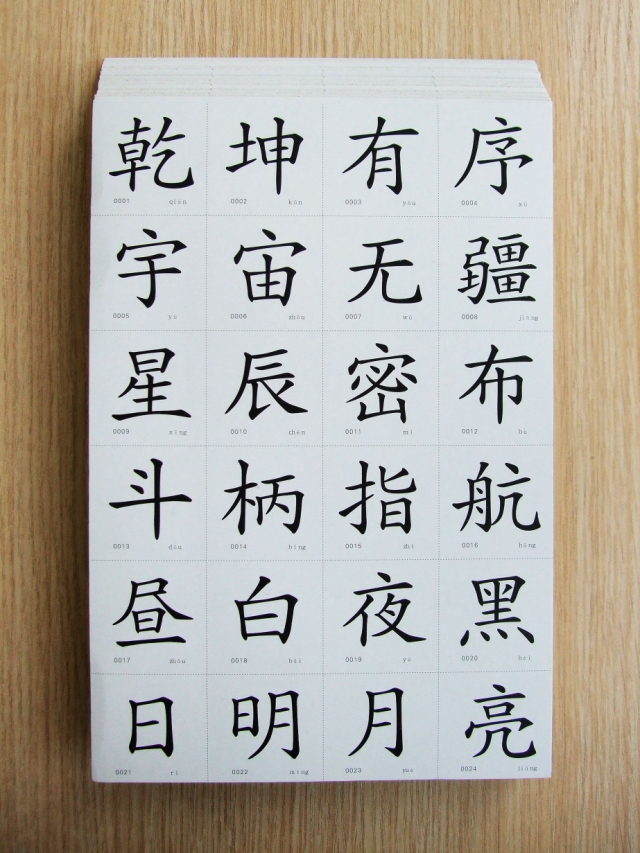 乾 坤 有 序
0001 qián 0002 kūn 0003 yǒu 0004 xù
宇 宙 无 疆
0005 yǔ 0006 zhòu 0007 wú 0008 jiāng
星 辰 密 布
0009 xīng 0010 chén 0011 mì 0012 bù
斗 柄 指 航
0013 dǒu 0014 bǐng 0015 zhǐ 0016 háng
昼 白 夜 黑
0017 zhòu 0018 bái 0019 yè 0020 hēi
日 明 月 亮
0021 rì 0022 míng 0023 yuè 0024 liàng